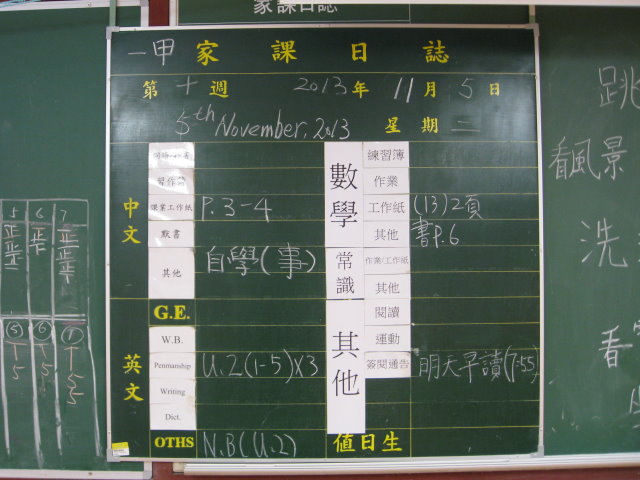 家課日誌
一甲 家課日誌
第十週 2013年 11月 5日
5th November, 2013 星期二
中文
習作簿
課業工作紙 P.3-4
默書
其他 自學(事)
G.E.
英文
W.B.
Penmanship U.2(1-5)x3
Writing
Dict.
OTHS N.B(U.2)
數學
練習簿
作業
工作紙 (13)2頁
其他 書P.6
常識
作業/工作紙
其他
其他
閱讀
運動
簽閱通告 明天早讀(7:55)
值日生
5 6 7
正正
正
正正正
⑤ ⑥ ⑦
5
5
5
跳
看風景
洗
看